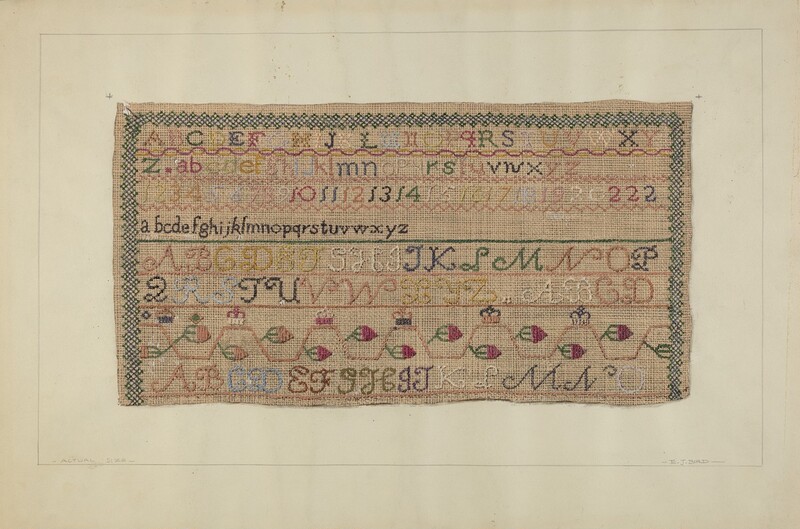 A B C D E F G H I J K L M N O P Q R S T U V W X Y
Z. a b c d e f g h i j k l m n o p q r s t u v w x y z
10 11 12 13 14 15 16 17 18 19 20 222
a b c d e f g h i j k l m n o p q r s t u v w x y z
A B C D E F G H I J K L M N O P
Q R S T U V W X Y Z A B C D
A B C D E F G H I J K L M N O